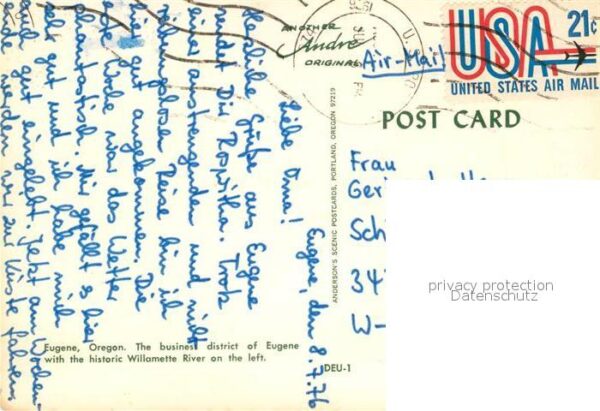 ANOTHER
André
ORIGINAL
Air-Mail
USA 21c
UNITED STATES AIR MAIL
POST CARD
Frau
Ger
Sch
34
W-
privacy protection
Datenschutz
ANDERSON'S SCENIC POSTCARDS, PORTLAND, OREGON 97219
Eugene, den 8.7.76
Liebe Oma!
Herzliche Grüße aus Eugene
sendet Dir Roswitha. Trotz
einer anstrengenden und nicht
reibungslosen Reise bin ich
hier gut angekommen. Die
erste Woche war das Wetter
phantastisch. Mir gefällt es hier
sehr gut und ich habe mich
auch gut eingelebt. Jetzt am Wochen-
ende werden wir zur Küste fahren
Eugene, Oregon. The business district of Eugene
with the historic Willamette River on the left.
DEU-1